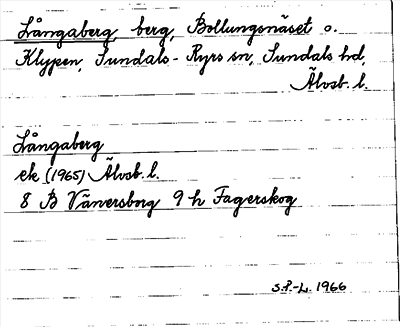 Långaberg, berg, Bollungsnäset o.
Klypen, Sundals-Ryrs sn, Sundals hd,
Älvsb. l.
Långaberg
ek (1965) Älvsb. l.
8 B Vänersborg 9 h Fagerskog
S.P.-L. 1966